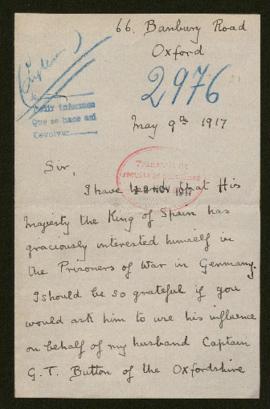 66. Banbury Road
Oxford
2976
Pedir informes
Que se hace así
May 9th 1917
Sir,
I have that His
Majesty the King of Spain has
graciously interested himself in
the Prisoners of War in Germany.
I should be so grateful if you
would ask him to use his influence
on behalf of my husband Captain
G. T. Button of the Oxfordshire